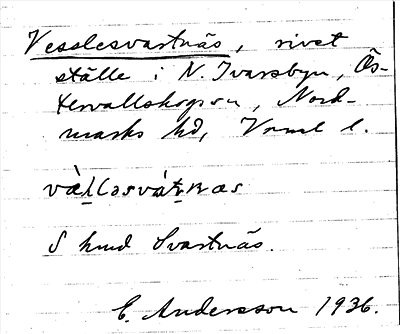 Vesslesvartnäs, rivet
ställe i N. Ivarsbyn, Ös-
tervallskogsn, Nord-
marks hd, Vrml l.
S hmd Svartnäs.
E. Andersson 1936.